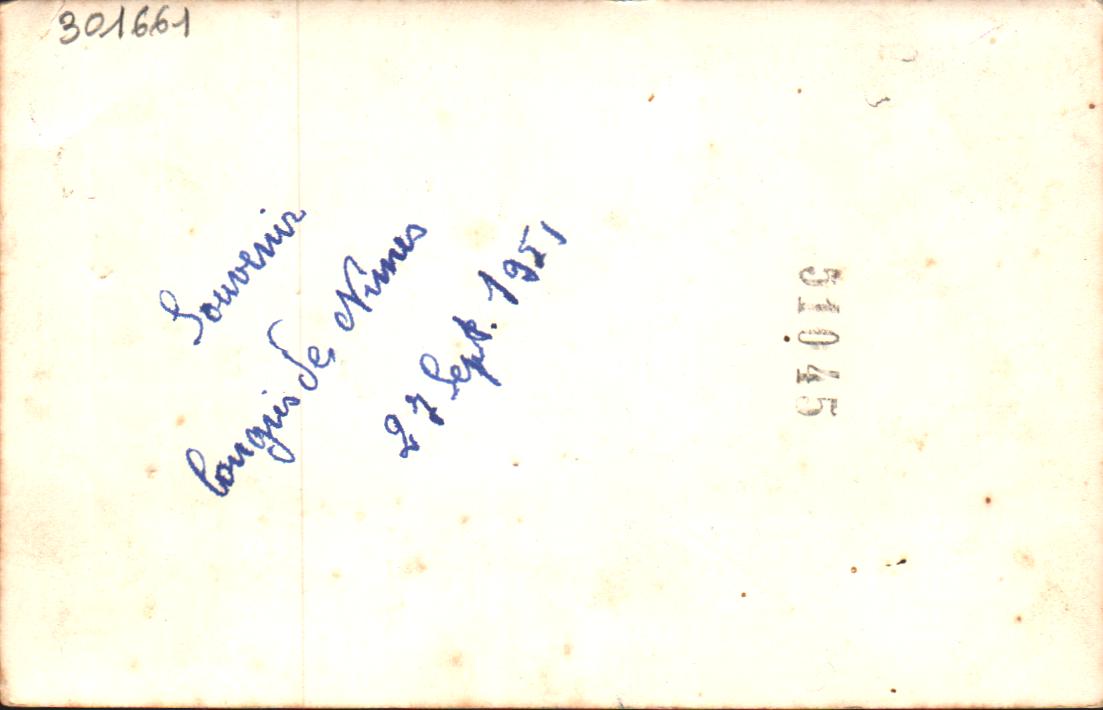 301661
Souvenir
Congrès de Nimes
27 Sept. 1951
51045